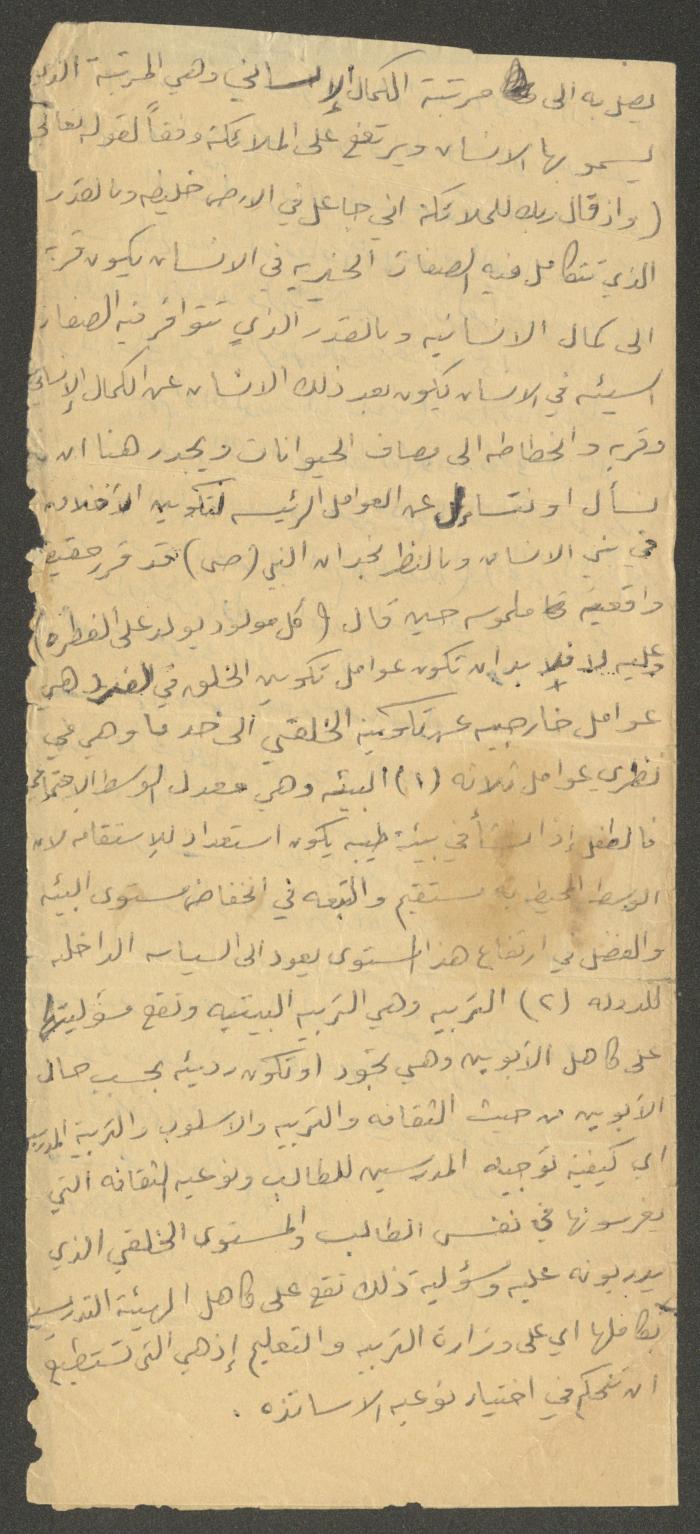 يصل به الى مرتبة الكمال الإنساني وهي المرتبة الذي
يسمو بها الانسان ويرتفع على الملائكة وفقاً لقوله تعالى
(واذ قال ربك للملائكة اني جاعل في الارض خليفه وبالقدر
الذي تتكامل فيه الصفات الخيريه في الانسان يكون قربه
الى كمال الانسانيه وبالقدر الذي تتوافر فيه الصفات
السيئه في الانسان يكون بعد ذلك الانسان عن الكمال الإنساني
وقربه وانحطاطه الى مصاف الحيوانات ويجدر هنا ان
نسأل او نتساءل عن العوامل الرئيسه لتكوين الأخلاق
في بني الانسان وبالنظر نجد ان النبي (ص) قد قرر حقيقة
واقعية ملموسه حين قال (كل مولود يولد على الفطره)
وعليه فلا بد ان تكون عوامل تكوين الخلق في الفرد هي
عوامل خارجيه عن تكوينه الخلقي الى حد ما وهي في
نظري عوامل ثلاثه (١) البيئه وهي معدل الوسط الاجتماعي
فالطفل إذا نشأ في بيئة طيبه يكون استعداد للإستقامه لان
الوسط المحيط به مستقيم والتبعه في انخفاض مستوى البيئه
والفضل في ارتفاع هذا المستوى يعود الى السياسه الداخليه
للدوله (٢) التربيه وهي التربيه البيتيه وتقع مسؤليتها
على كاهل الأبوين وهي تجود او تكون رديئه بحسب حال
الأبوين من حيث الثقافه والتربيه والاسلوب والتربية المدرسيه
اي كيفية توجيه المدرسين للطالب ونوعيه الثقافه التي
يغرسونها في نفس الطالب والمستوى الخلقي الذي
يدربونه عليه ومسؤلية ذلك تقع على كاهل الهيئة التدريسيه
بكاملها اي على وزارة التربيه والتعليم إذ هي التي تستطيع
ان تتحكم في اختيار نوعيه الاساتذه .